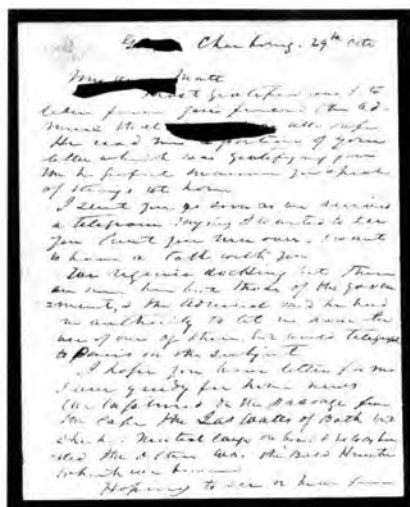 Cherbourg. 29th
My Matt
Most gratified was I to
learn from your friend the Ad-
miral that also safe
He read me a portion of your
letter which was gratifying from
the hopeful manner you speak
of things at home
I sent you as soon as we
a telegram saying I wanted to see
you Can't you run over. I want
to have a talk with you
We require docking but there
are none here but those of the govern
=ment, & the Admiral said he had
no authority to let us have the
use of one of them, but would telegraph
to Paris on the subject
I hope you have letters for me
I am greedy for home news
We captured in the passage from
the Cape the of Bath
Neutral cargo on board
the other was the
which we
Hoping to see or hear from